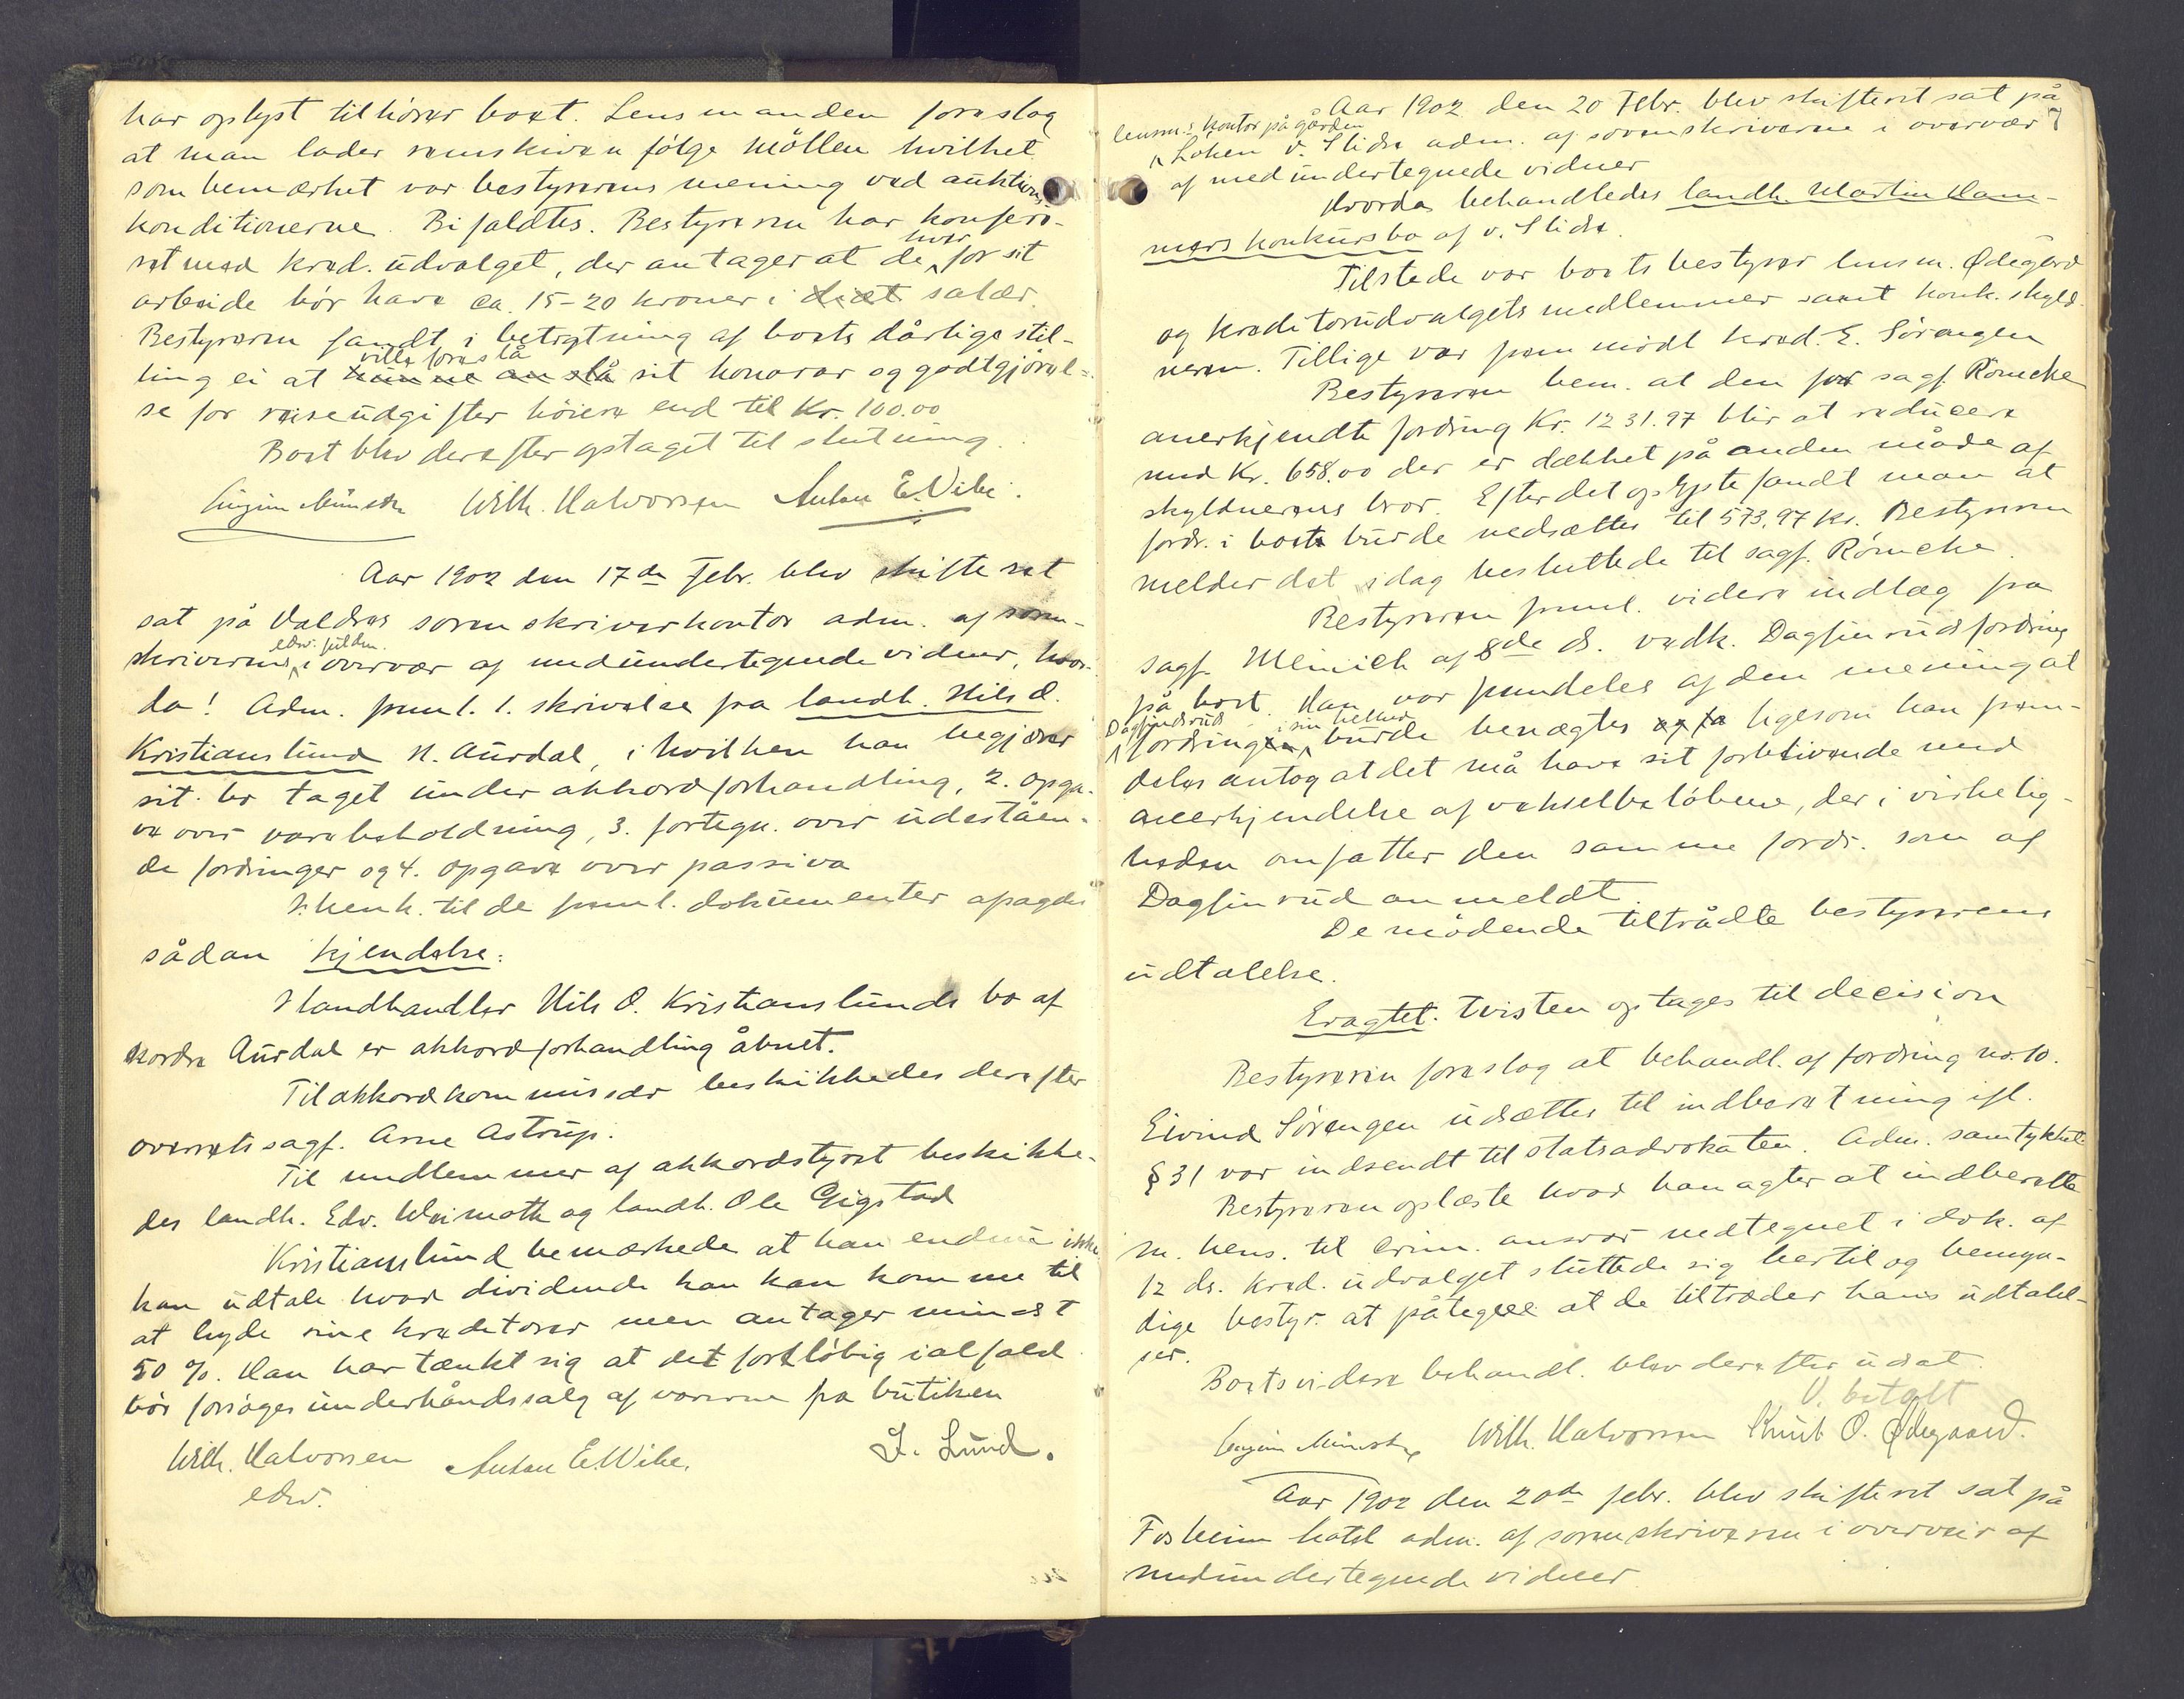 har oplyst tilhører boet. Lensmanden foreslog
at man lader remskiven følge møllen hvilket
som bemærket var bestyrerens mening ved auktions
konditionerne. Bifaldtes. Bestyreren har konfere-
ret med kred. udvalget, der antager at de hver for sit
arbeide bør have ca. 15-20 kroner i diæt salær.
Bestyreren fandt i betragtning af boets dårlige stil-
ling ei at ville foreslå kunne anslå sit honorar og godtgjørel-
se for reiseudgifter høiere end til Kr. 100.00
Boet blev derefter optaget til slutning.
Wilh. Halvorsen Anton E. Vibe.
Aar 1902 den 17de Febr. blev skifteret
sat på Valdres sorenskriverkontor adm. af soren-
skriverens edsv. fuldm. i overvær af medundertegnede vidner, hvor-
da! Adm. freml. 1. skrivelse fra landh. Nils O.
Kristianslund N. Aurdal, i hvilken han begjærer
sit bo taget under akkordforhandling, 2. opga-
ve over varebeholdning, 3. fortegn. over udeståen-
de fordringer og 4. opgave over passiva
I henh. til de freml. dokumenter afsagdes
sådan kjendelse:
I landhandler Nils O. Kristianslunds bo af
Nordre Aurdal er akkordforhandling åbnet.
Til akkordkommissær beskikkedes derefter
overretssagf. Arne Astrup.
Til medlemmer af akkordstyret beskikke-
des landh. Edv. Weimoth og landh. Ole Gigstad
Kristianslund bemærkede at han endnu ikke
kan udtale hvor dividende han kan komme til
at byde sine kreditorer men antager mindst
50 %. Han har tænkt sig at det foreløbig ialfald
bør forsøges underhåndssalg af varerne fra butiken
Wilh. Halvorsen Anton E. Vibe. J. Lund.
edsv.
7
Aar 1902 den 20 Febr. blev skifteret sat på
lensm.s kontor på gården
Loken v. Slidre adm. af sorenskriveren i overvær
af medundertegnede vidner
Hvorda behandledes landh. Martin Ham-
mers konkursbo af v. Slidre.
Tilstede var boets bestyrer lensm. Ødegård
og kreditorudvalgets medlemmer samt konk. skyld-
neren. Tillige var frem mødt kred. E. Sørengen
Bestyreren bem. at den for sagf. Römcke
anerkjendte fordring Kr. 1231.97 blir at reducere
med Kr. 658.00 der er dækket på anden måde af
skyldnerens bror. Efter det oplyste fandt man at
fordr. i boet burde nedsættes til 573.97 kr. Bestyreren
melder det idag besluttede til sagf. Römcke.
Bestyreren freml. videre indlæg fra
sagf. Meinich af 8de ds. vedk. Dagfinruds fordring
på boet. Han var fremdeles af den mening at
Dagfinsruds fordringen i sin helhed burde benægtes og fa ligesom han frem-
deles antog at det må have sit forblivende med
anerkjendelse af vekselbeløbene, der i virkelig-
heden omfatter den samme fordr. som af
Dagfinrud anmeldt.
De mødende tiltrådte bestyrerens
udtalelse.
Eragtet. Tvisten optages til decision
Bestyreren foreslog at behandl. af fordring no. 10.
Eivind Sørengen udsættes til indberetning ifl.
§ 31 var indsendt til statsadvokaten. Adm. samtykket
Bestyreren oplæste hvad han agter at indberette
m. hens. til crim. ansvar nedtegnet i dok. af
12 ds. Kred. udvalget sluttede sig hertil og bemyn-
dige bestyr. at påtegne at de tiltræder hans udtalel-
ser.
Boets videre behandl. blev derefter udsat.
V. betalt
Wilh. Halvorsen Knut O. Ødegaard.
Aar 1902 den 20de febr. blev skifteret sat på
Fosheim hotel adm. af sorenskriveren i overvær af
medundertegnede vidner